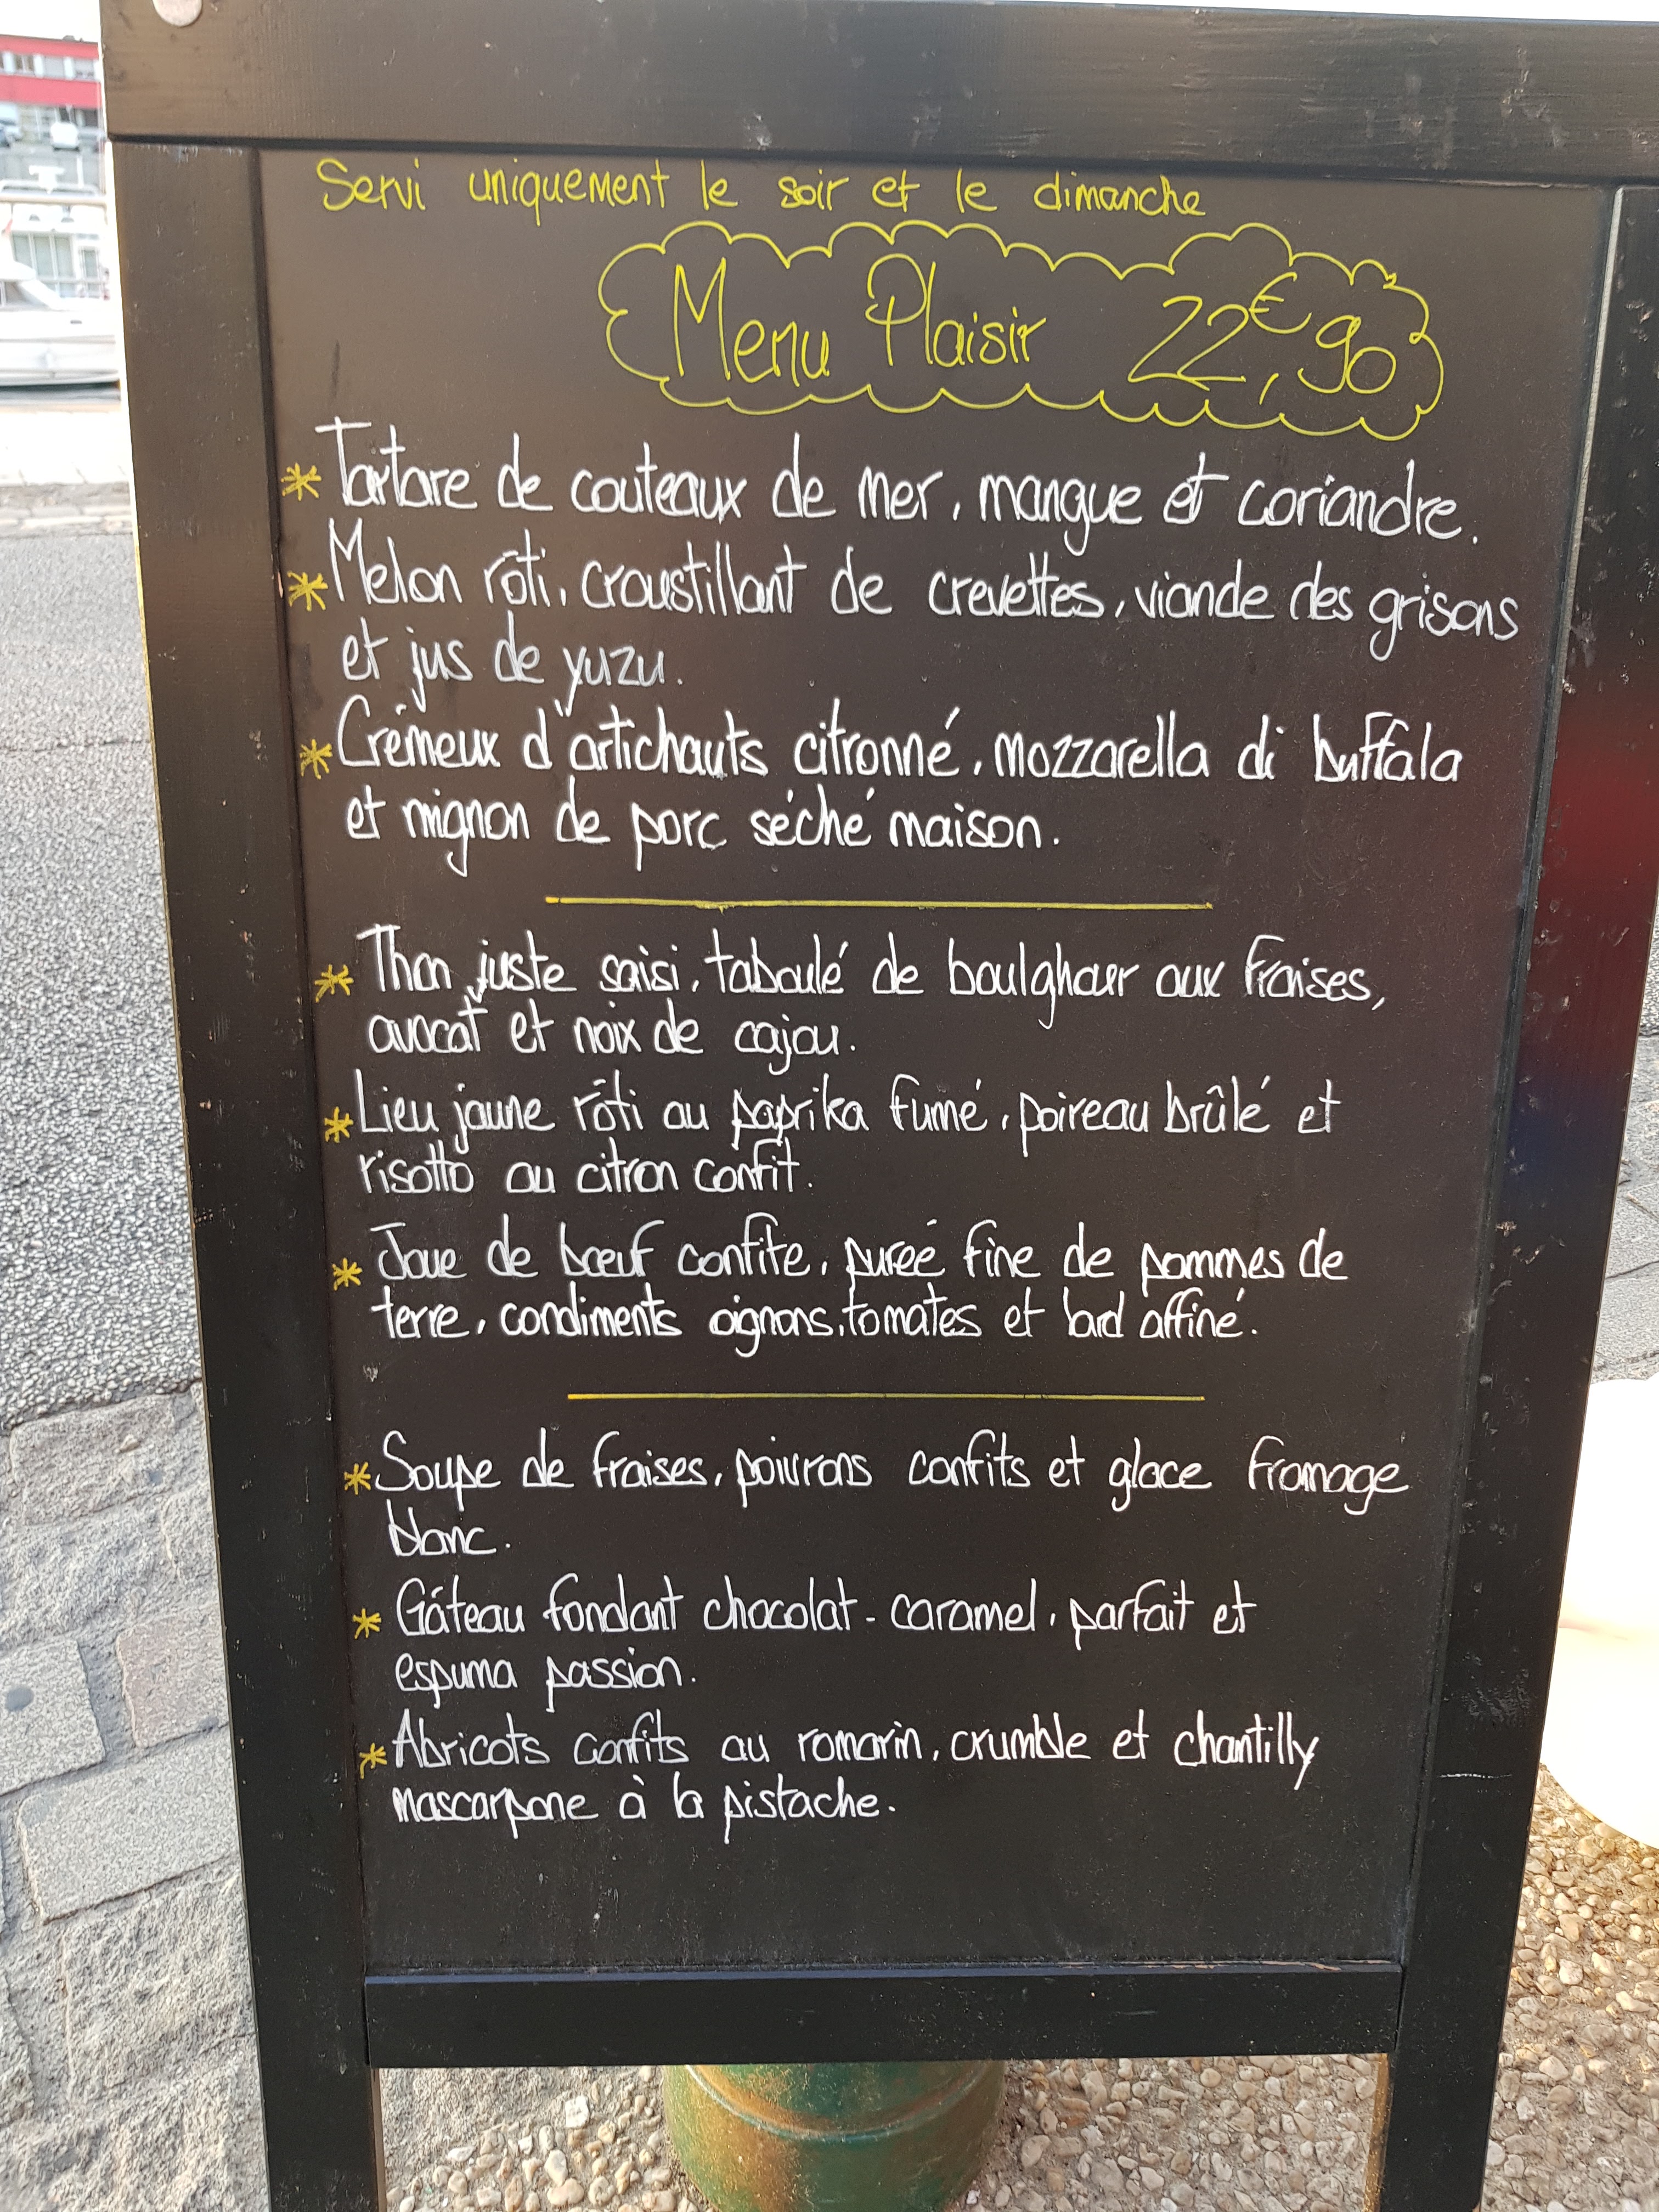 Servi uniquement le soir et le dimanche
Menu Plaisir 22€,90
* Tartare de couteaux de mer, mangue et coriandre.
* Melon rôti, croustillant de crevettes, viande des grisons
et jus de yuzu.
* Crémeux d'artichauts citronné, mozzarella di buffala
et mignon de porc séché maison.
* Thon juste saisi, taboulé de boulghour aux fraises,
avocat et noix de cajou.
* Lieu jaune rôti au paprika fumé, poireau brûlé et
risotto au citron confit.
* Joue de bœuf confite, pureé fine de pommes de
terre, condiments oignons, tomates et lard affiné.
* Soupe de fraises, poivrons confits et glace fromage
blanc.
* Gâteau fondant chocolat - caramel, parfait et
espuma passion.
* Abricots confits au romarin, crumble et chantilly
mascarpone à la pistache.